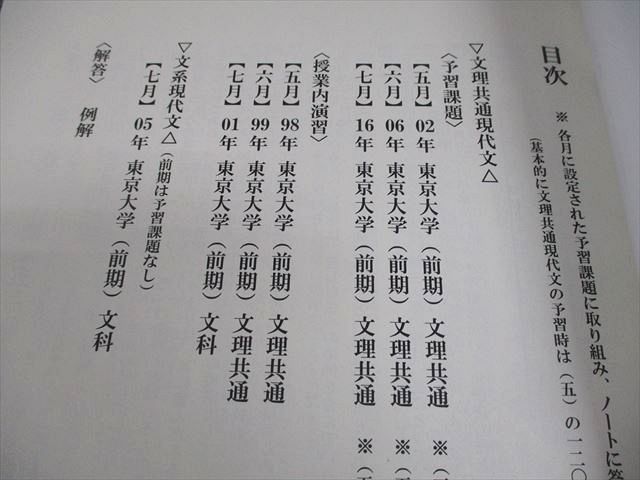 目次
※ 各月に設定された予習課題に取り組み、ノートに答
（基本的に文理共通現代文の予習時は（五）の一二〇
▽文理共通現代文△
〈予習課題〉
【五月】 02年 東京大学（前期）文理共通 ※（五
【六月】 06年 東京大学（前期）文理共通 ※（五
【七月】 16年 東京大学（前期）文理共通 ※（五
〈授業内演習〉
【五月】 98年 東京大学（前期）文理共通
【六月】 99年 東京大学（前期）文理共通
【七月】 01年 東京大学（前期）文理共通
▽文系現代文△（前期は予習課題なし）
【七月】 05年 東京大学（前期）文科
〈解答〉 例解